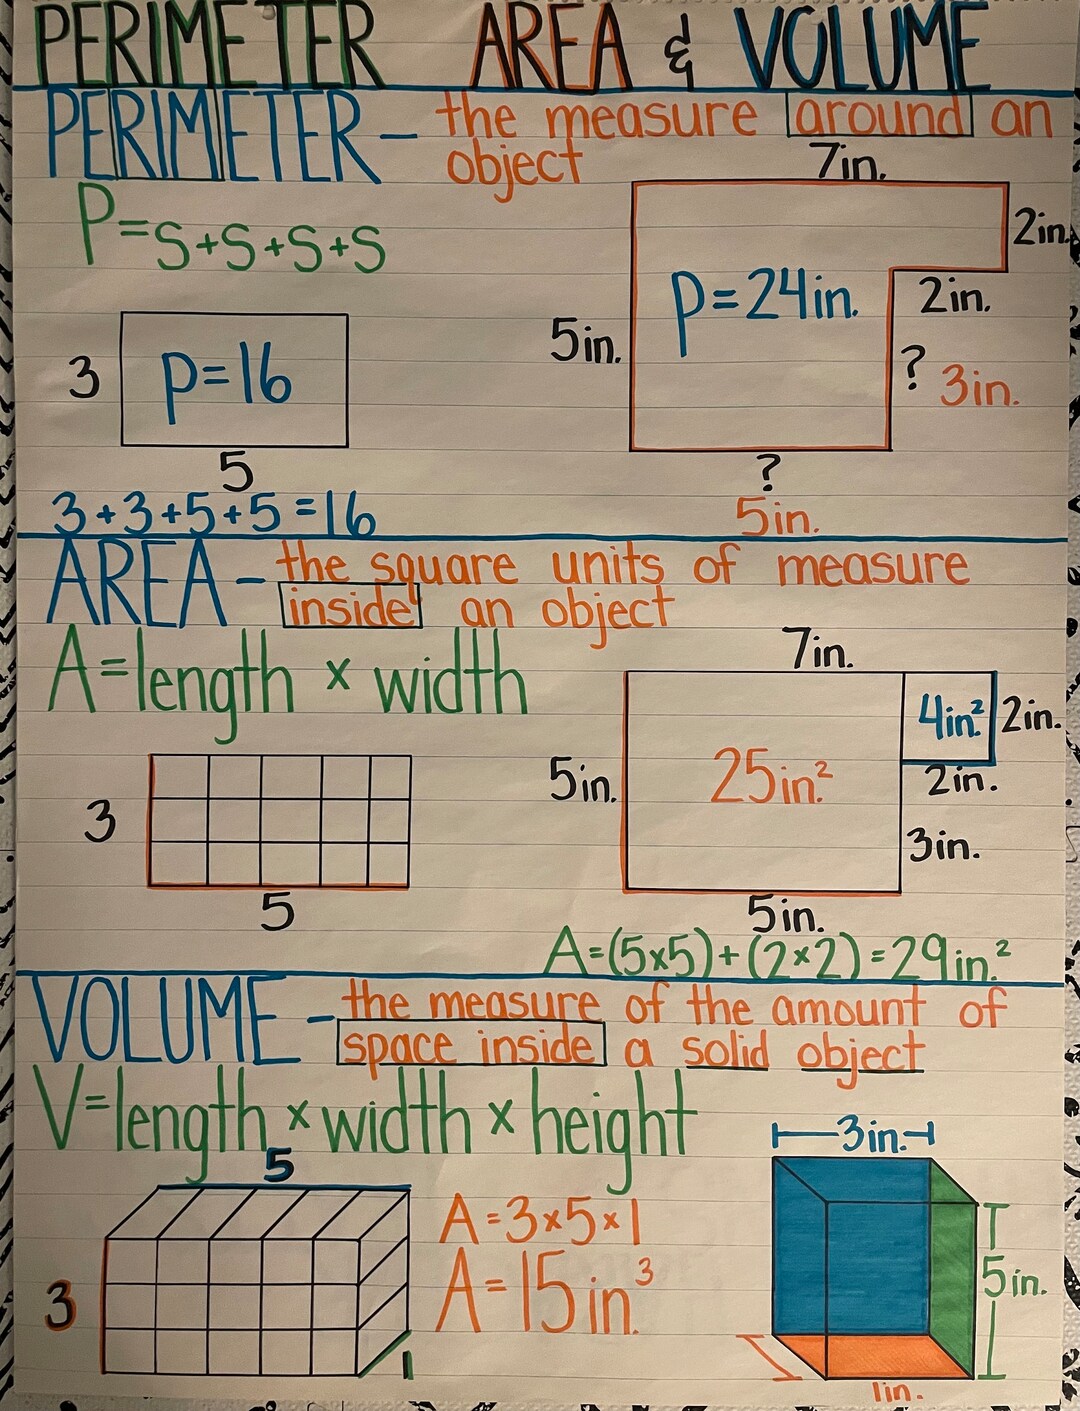 PERIMETER AREA & VOLUME
PERIMETER - the measure around an
object
P=S+S+S+S
7in.
2in.
2in.
P=24in.
5in.
? 3in.
?
5in.
3
P=16
5
3+3+5+5=16
AREA - the square units of measure
inside an object
A=length x width
7in.
4in.²
2in.
2in.
5in.
25in.²
3in.
5in.
3
5
A=(5x5)+(2x2)=29in.²
VOLUME - the measure of the amount of
space inside a solid object
V=length x width x height
5
3
1
A=3x5x1
A=15in.³
3in.
5in.
1in.